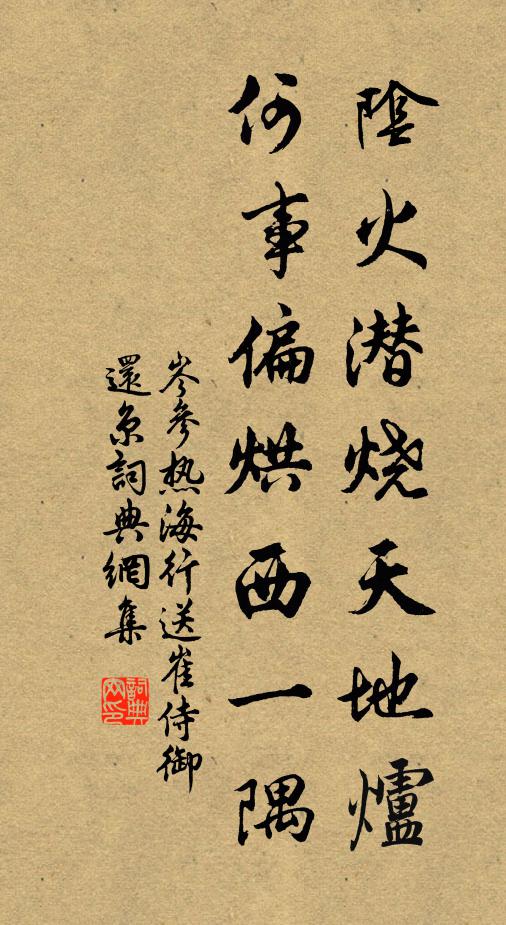 陰火潜烧天地爐
何事偏烘西一隅
岑參热海行送崔侍御
還京詞典網集
詞典网印